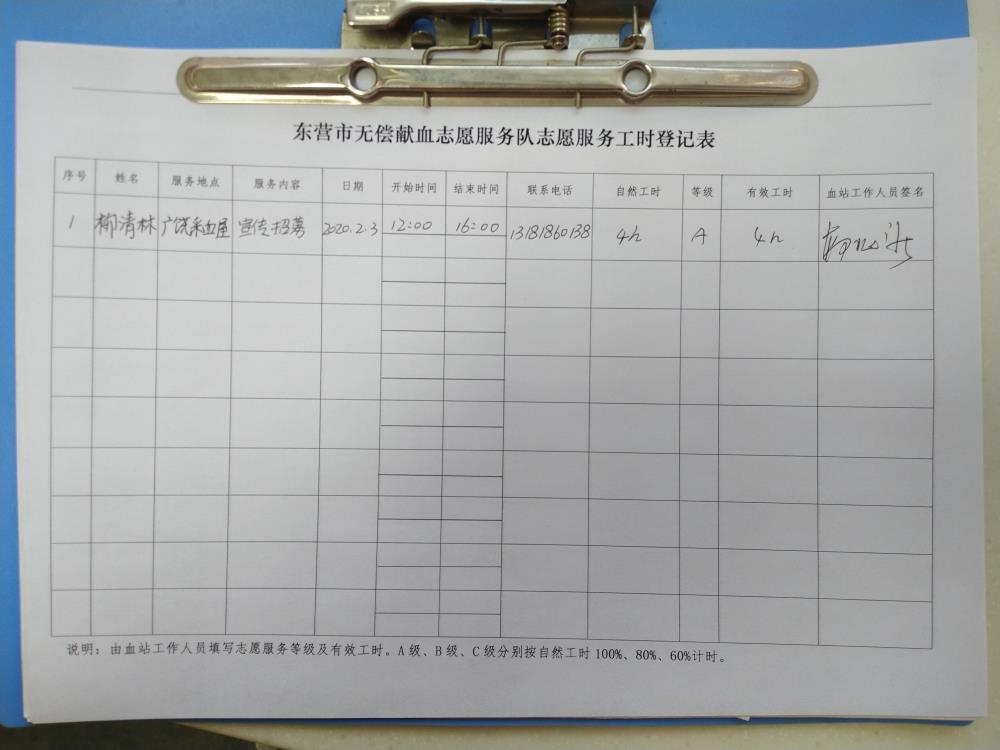 东营市无偿献血志愿服务队志愿服务工时登记表
序号 姓名 服务地点 服务内容 日期 开始时间 结束时间 联系电话 自然工时 等级 有效工时 血站工作人员签名
1 柳清林 广饶采血屋 宣传招募 2020.2.3 12:00 16:00 13181860138 4h A 4h
说明：由血站工作人员填写志愿服务等级及有效工时。A级、B级、C级分别按自然工时100%、80%、60%计时。